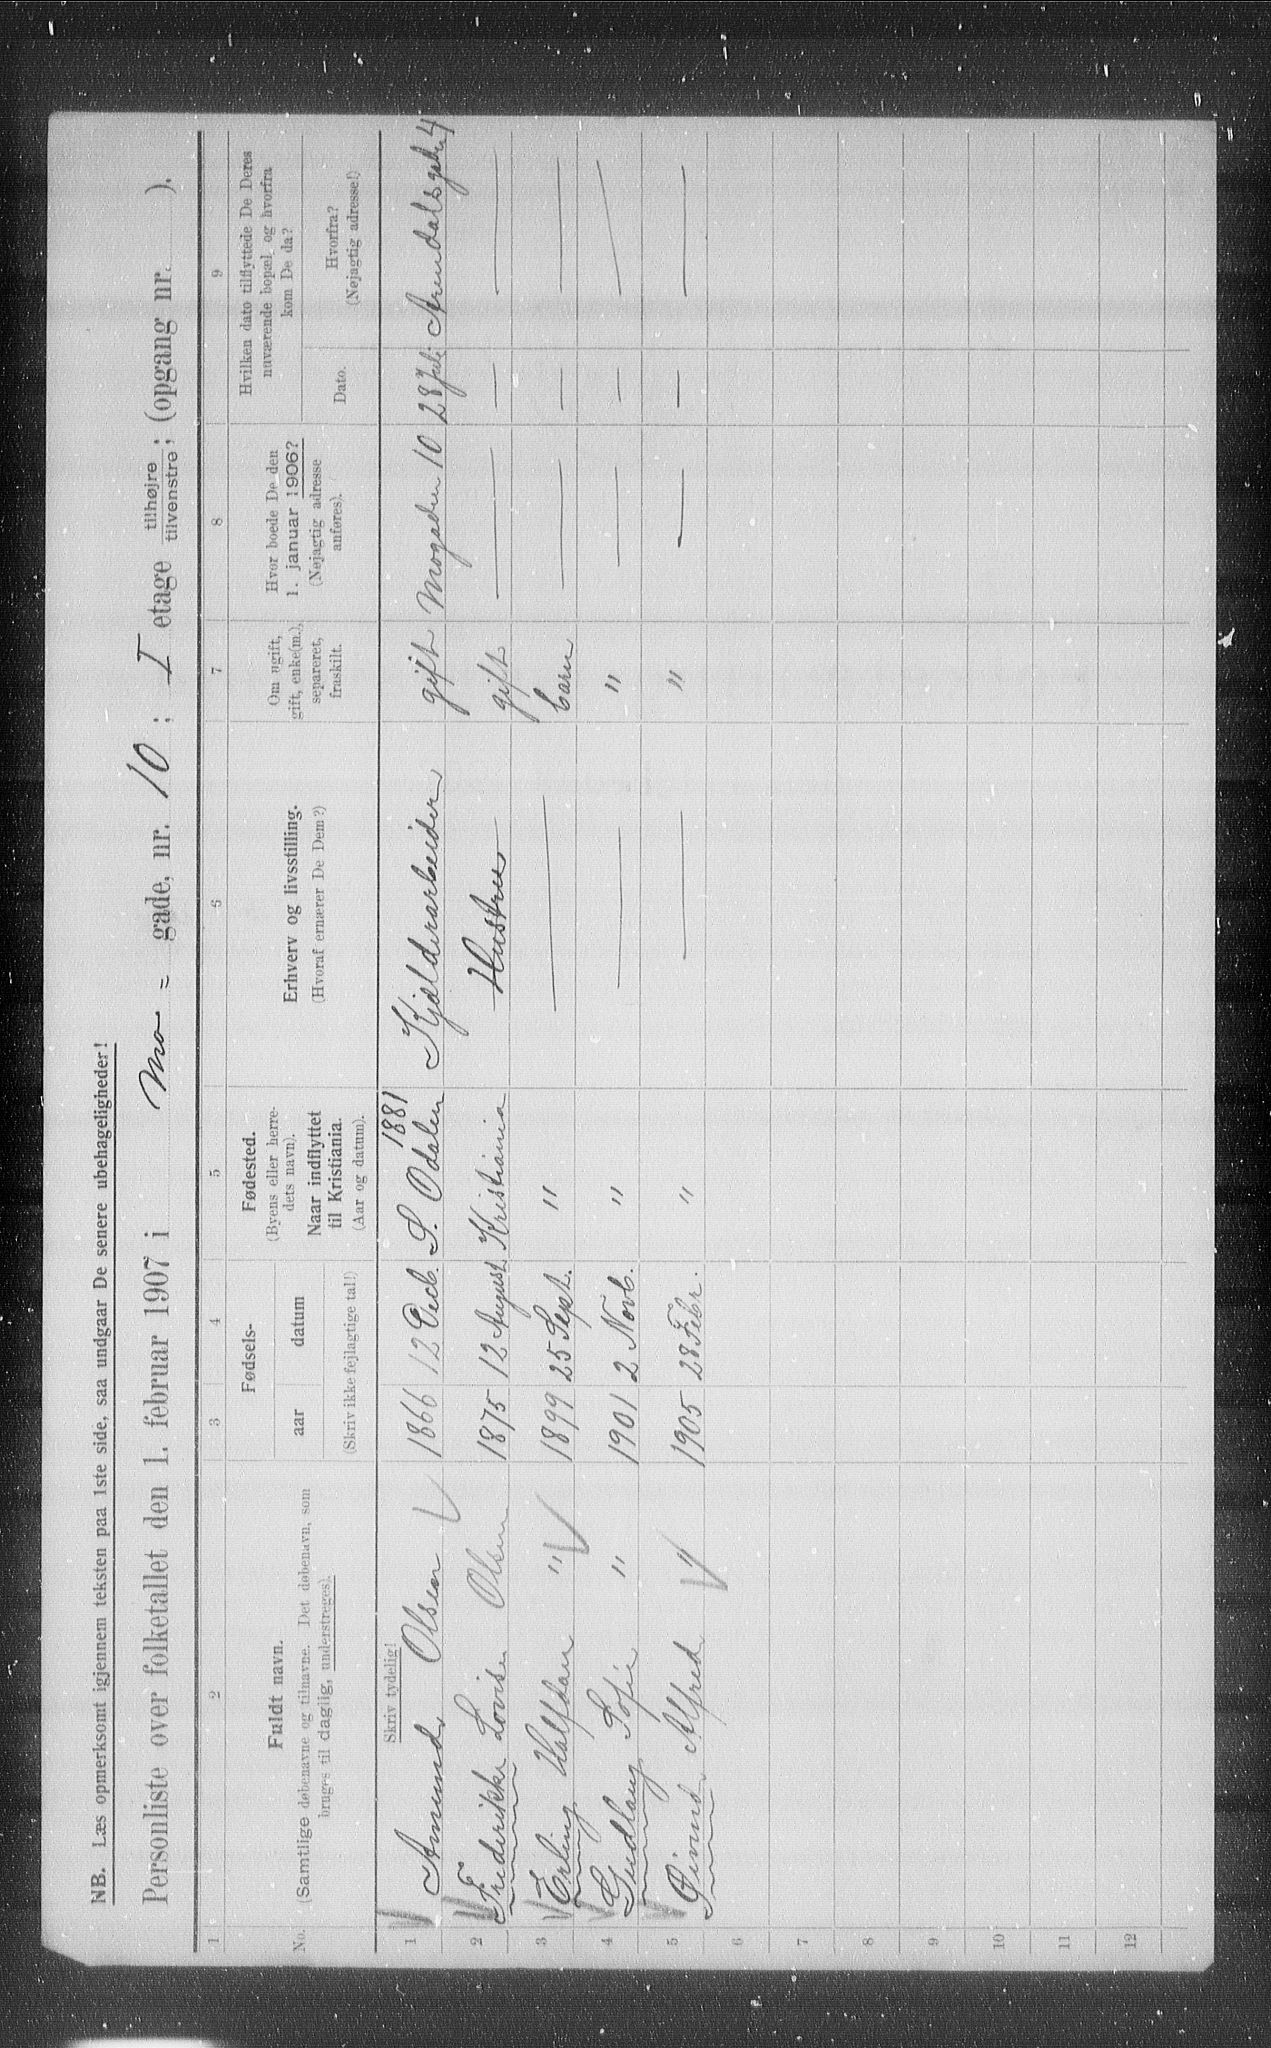 NB. Læs opmerksomt igjennem teksten paa 1ste side, saa undgaar De senere ubehageligheder!
Personliste over folketallet den 1. februar 1907 i Mo = gade, nr. 10 ; I etage tilhøjre tilvenstre ; (opgang nr. ).
1 2 3 4 5 6 7 8 9
No. Fuldt navn. (Samtlige døbenavne og tilnavne. Det døbenavn, som bruges til daglig, understreges). Fødsels- aar datum (Skriv ikke fejlagtige tal!) Fødested. (Byens eller herredets navn). Naar indflyttet til Kristiania. (Aar og datum). Erhverv og livsstilling. (Hvoraf ernærer De Dem?) Om ugift, gift, enke(m.), separeret, fraskilt. Hvor boede De den 1. januar 1906? (Nøjagtig adresse anføres). Hvilken dato tilflyttede De Deres nuværende bopæl, og hvorfra kom De da? Dato. Hvorfra? (Nøjagtig adresse!)
Skriv tydelig!
1881
1 Amund Olsen 1866 12 Decb. S. Odalen Kjælderarbeider gift Mogaden 10 28 Juli Arendalsgaden 4
2 Frederikke Lovise Olsen 1875 12 August Kristiania Hustru gift — — —
3 Erling Halfdan " 1899 25 Sept. " — barn — — —
4 Gudlaug Sofie " 1901 2 Novb. " — " — — —
5 Øivind Alfred " 1905 28 Febr. " — " — — —
6
7
8
9
10
11
12